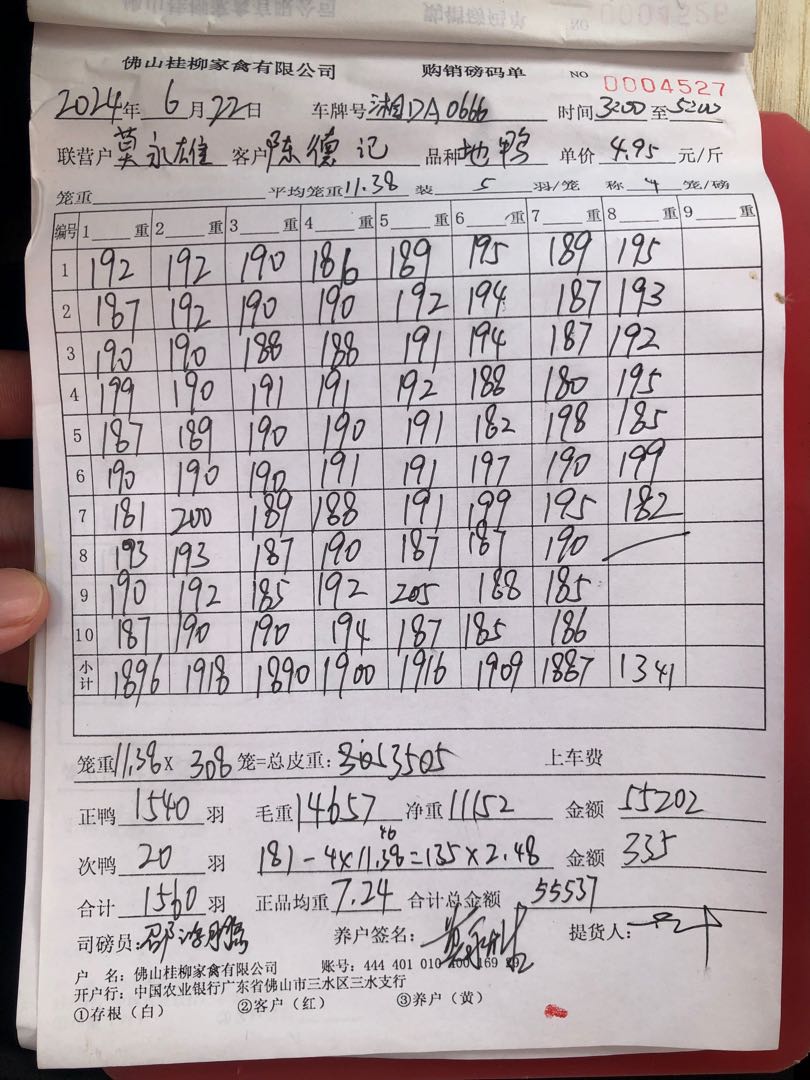 佛山桂柳家禽有限公司 购销磅码单 NO 0004527
2024年 6月22日 车牌号 湘DA0666 时间 3200至5200
联营户 莫永雄 客户 陈德记 品种 地鸭 单价 4.95 元/斤
笼重 平均笼重 11.38 装 5 羽/笼 称 4 笼/磅
编号 1 重 2 重 3 重 4 重 5 重 6 重 7 重 8 重 9 重
1 192 192 190 186 189 195 189 195
2 187 192 190 190 192 194 187 193
3 190 190 188 188 191 194 187 192
4 199 190 191 191 192 188 180 195
5 187 189 190 190 191 182 198 185
6 190 190 190 191 191 197 190 199
7 181 200 189 188 191 199 195 182
8 193 193 187 190 187 187 190
9 190 192 185 192 205 188 185
10 187 190 190 194 187 185 186
小计 1896 1918 1890 1900 1916 1909 1887 1341
笼重 11.38 × 308 笼=总皮重: 3505 上车费
正鸭 1540 羽 毛重 14657 净重 11152 金额 55202
46
次鸭 20 羽 181-4×11.38=135×2.48 金额 335
合计 1560 羽 正品均重 7.24 合计总金额 55537
司磅员: 养户签名: 提货人:
户 名: 佛山桂柳家禽有限公司 账号: 444 401 010 400 169
开户行: 中国农业银行广东省佛山市三水区三水支行
①存根（白） ②客户（红） ③养户（黄）